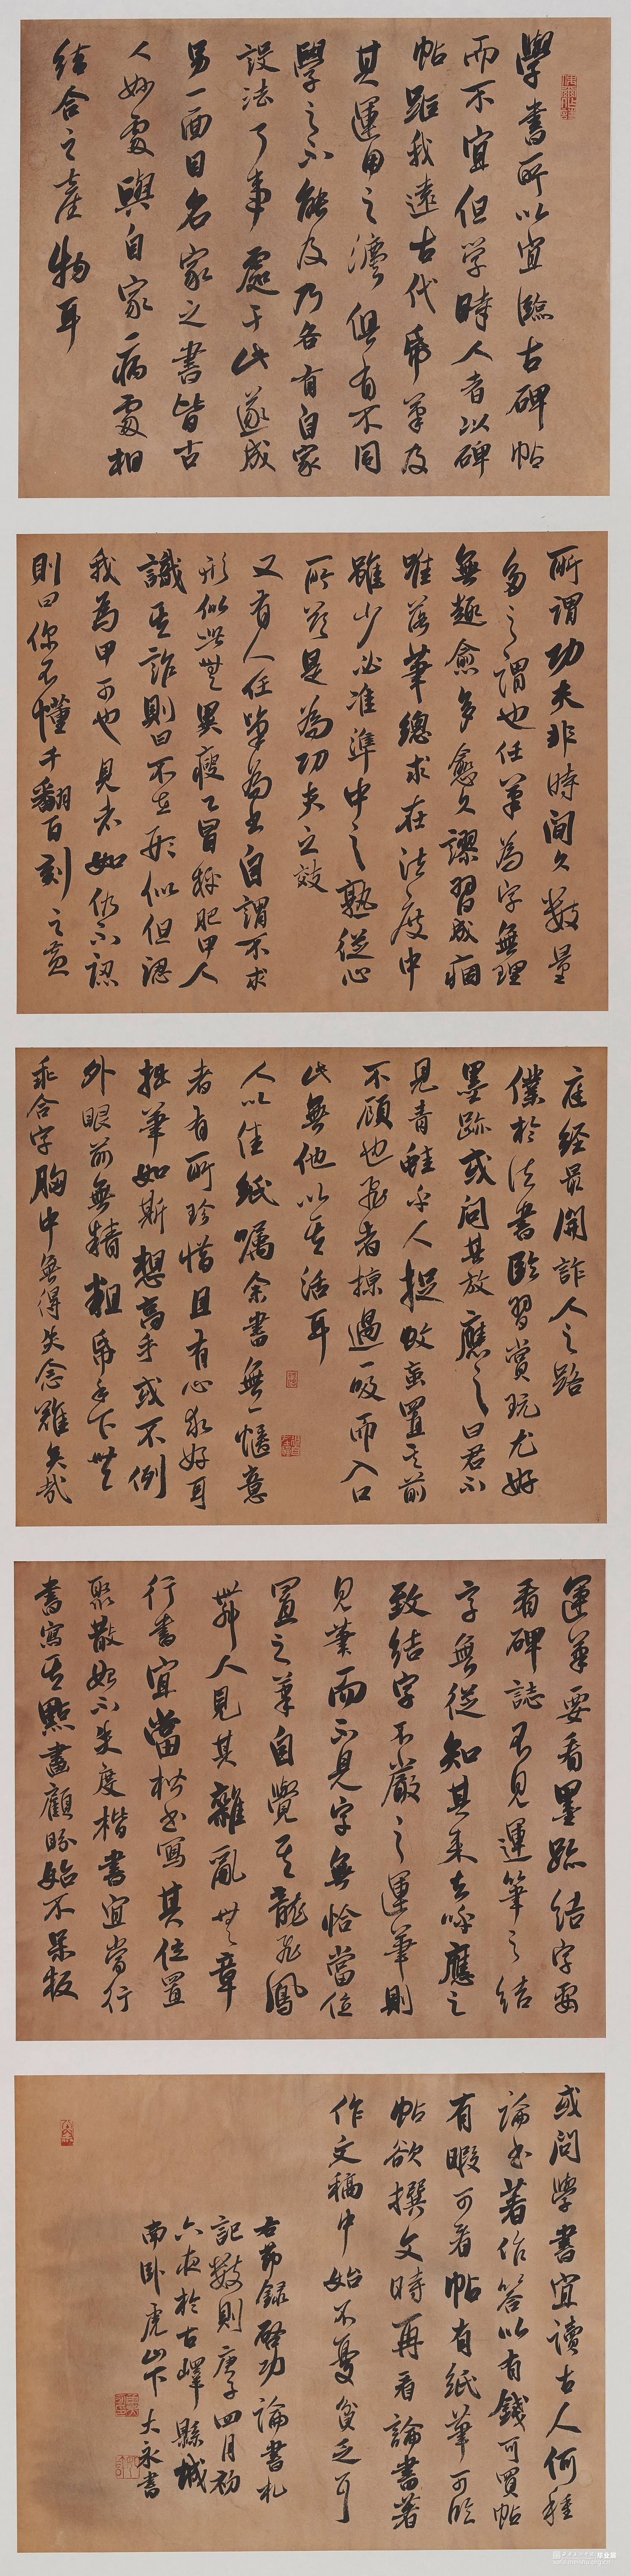 學書所以宜臨古碑帖
而不宜但学時人者以碑
帖距我遠古代紙筆及
其運用之法俱有不同
學之不能及乃各有自家
設法了事處于此遂成
另一面目名家之書皆古
人妙處與自家病處相
結合之産物耳
所謂功夫非時間久數量
多之謂也任筆為字無理
無趣愈多愈久謬習成痼
唯落筆總求在法度中
雖少必准準中之熟從心
所欲是為功夫之效
又有人任筆為書自謂不求
形似此無異瘦乙冒稱肥甲人
識其詐則曰不在形似但認
我為甲可也見者如仍不認
則曰你不懂千翻百刻之黄
庭经最開詐人之路
僕於法書臨習賞玩尤好
墨跡或问其故應之曰君不
見青蛙乎人捉蚊虻置其前
不顧也飛者掠過一吸而入口
此無他以其活耳
人以佳紙囑余書無一愜意
者有所珍惜且有心求好耳
拙筆如斯想高手或不例
外眼前無精粗紙手下無
乖合字胸中無得失念難矣哉
運筆要看墨跡结字要
看碑誌不見運筆之结
字無從知其来去呼應之
致结字不嚴之運筆則
見筆而不見字無恰當位
置之筆自覺其龍飛鳳
舞人見其雜亂無章
行書宜當楷書寫其位置
聚散始不失度楷書宜當行
書寫其點畫顧盼始不呆板
或问學書宜讀古人何種
論書著作答以有錢可買帖
有暇可看帖有紙筆可臨
帖欲撰文時再看論書著
作文稿中始不憂貧乏耳
右節錄啓功論書札
記數則庚子四月初
六夜於古嶧縣城
南卧虎山下大永書